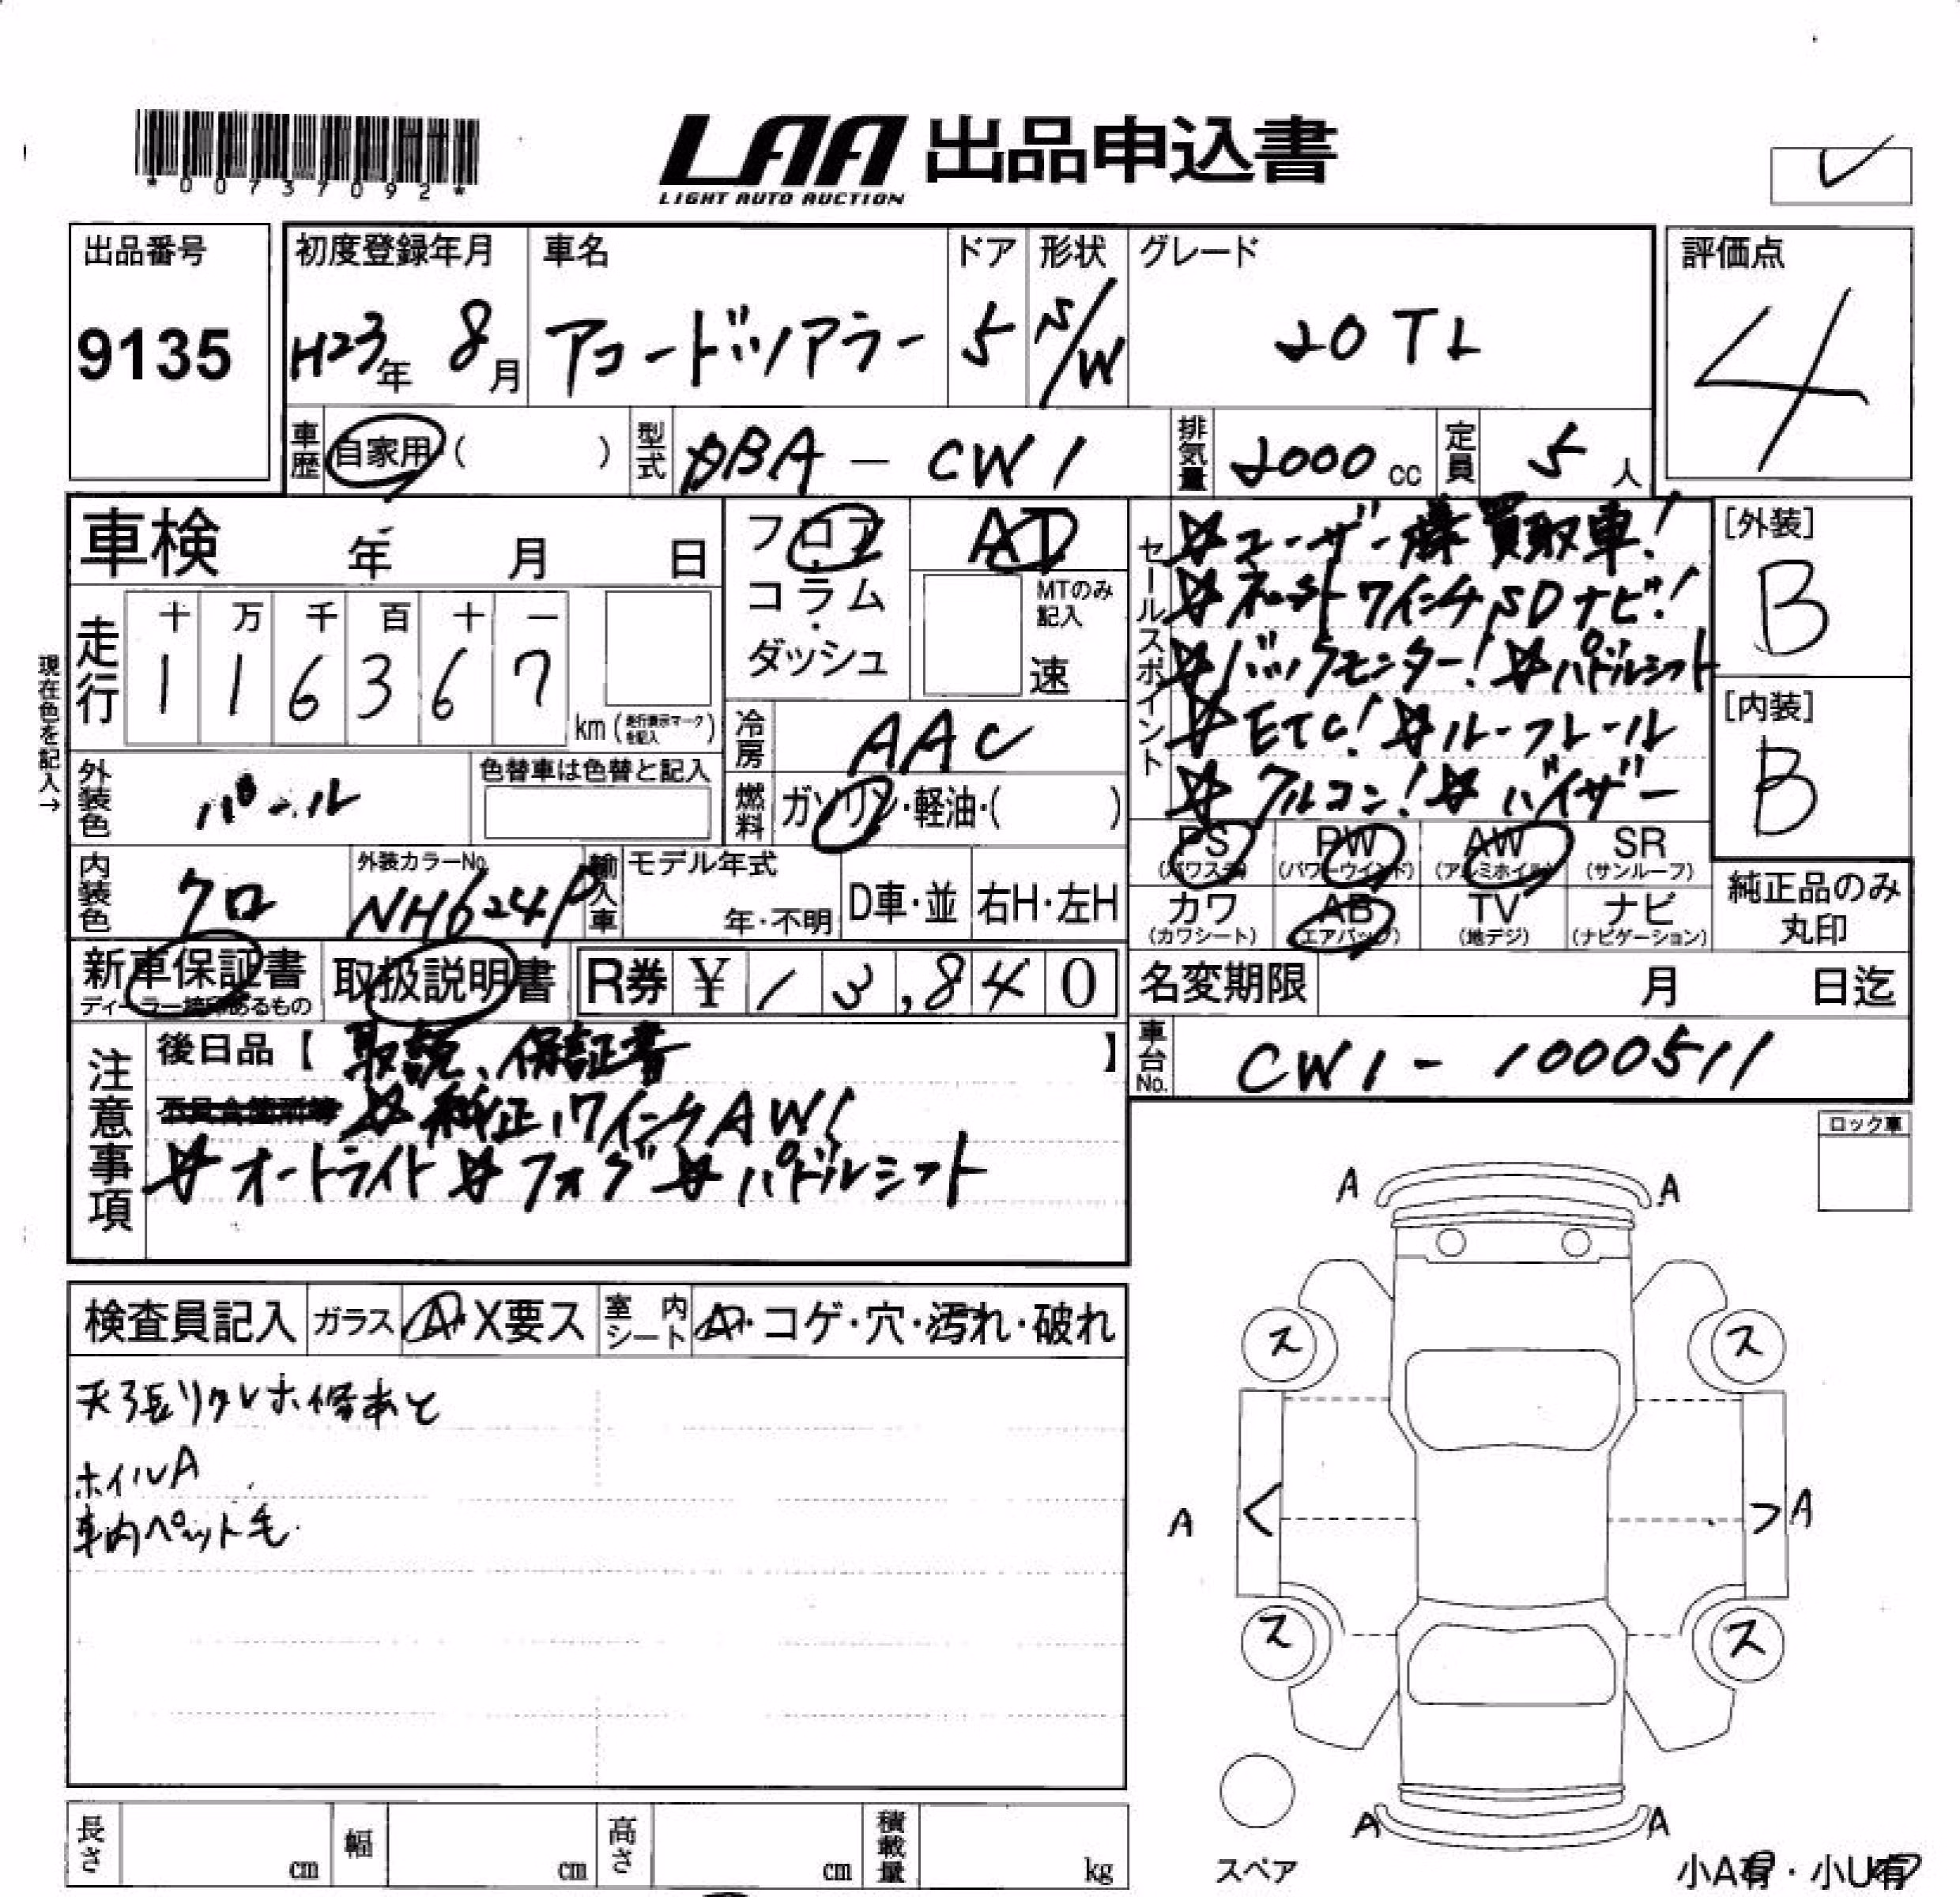 *00737092*
LAA 出品申込書
LIGHT AUTO AUCTION
出品番号
9135
初度登録年月
H23年 8月
車名
アコードツアラー
ドア
5
形状
S/W
グレード
20TL
評価点
4
車歴 自家用・( )
型式 DBA - CW1
排気量 2000 cc
定員 5 人
車検 年 月 日
フロア
コラム
・
ダッシュ
AT
MTのみ記入
速
セールスポイント
☆ユーザー様買取車!
☆ 7インチSDナビ!
☆バックモニター! ☆パドルシフト
☆ETC! ☆ルーフレール
☆クルコン! ☆バイザー
[外装]
B
[内装]
B
現在色を記入→
走行
十 万 千 百 十 一
1 1 6 3 6 7
km (走行表示マークを記入)
冷房 AAC
外装色 パール
色替車は色替と記入
燃料 ガソリン・軽油・( )
PS (パワステ)
PW (パワーウインド)
AW (アルミホイル)
SR (サンルーフ)
カワ (カワシート)
AB (エアバッグ)
TV (地デジ)
ナビ (ナビゲーション)
純正品のみ
丸印
内装色 クロ
外装カラーNo. NH624P
輸入車 モデル年式
年・不明
D車・並
右H・左H
新車保証書
ディーラー捺印あるもの
取扱説明書
R券 ¥ 13,840
名変期限 月 日迄
車台No. CW1 - 1000511
注意事項
後日品【 取説、保証書 】
☆純正17インチAW!
☆オートライト ☆フォグ ☆パドルシフト
ロック車
検査員記入
ガラス A・X要ス
室内シート A・コゲ・穴・汚れ・破れ
天張リクレホ修あと
ホイルA
車内ペット毛
A A
ス ス
A < > A
ス ス
A A
スペア
小A有・小U有
長さ cm
幅 cm
高さ cm
積載量 kg